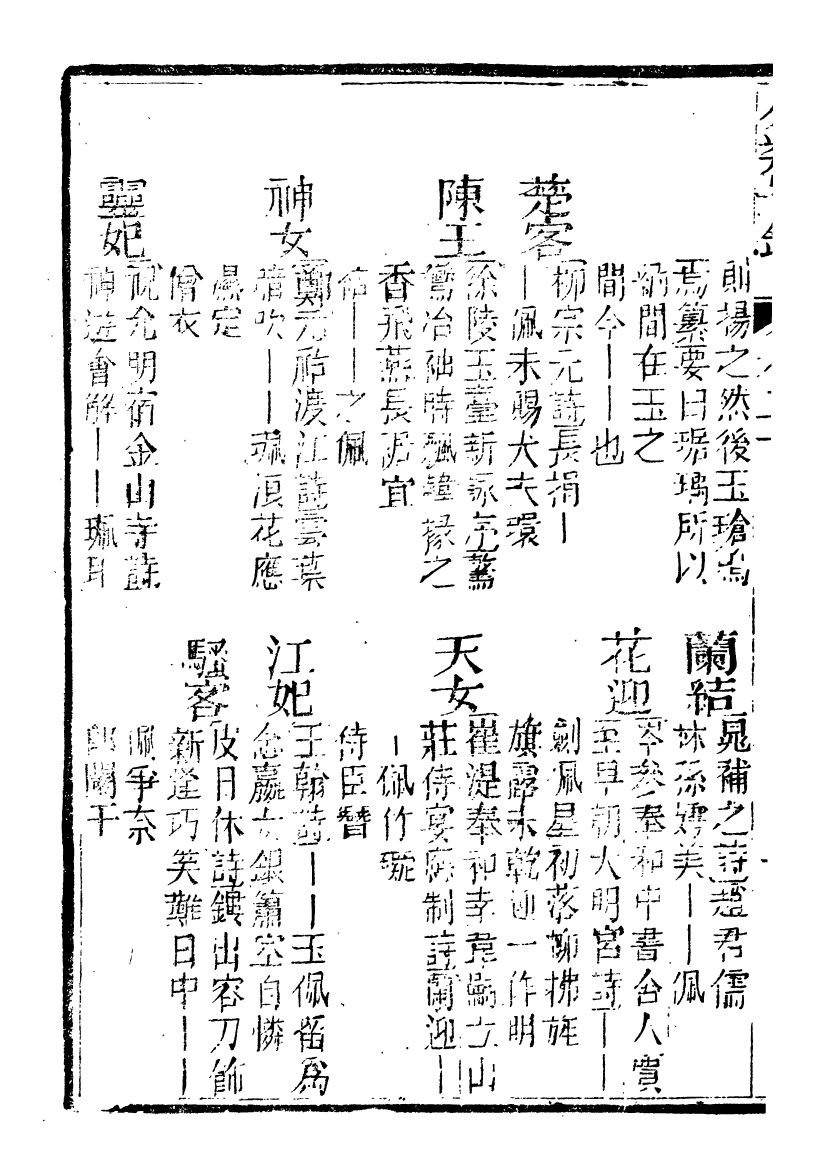 則揚之然後玉瑲焉
焉纂要曰琚瑀所以
納間在玉之
間今——也
蘭結
晁補之詩趙君儒
妹孫嫮美——佩
花迎
岑參奉和中書舍人賈
至早朝大明宮詩——
劍佩星初落柳拂旌
旗露未乾迎一作明
楚客
柳宗元詩長捐—
—佩未賜大夫環
陳王
徐陵玉臺新詠序驚
鸞冶袖時飄韓掾之
香飛燕長裾宜
結——之佩
天女
崔湜奉和幸韋嗣立山
莊侍宴應制詩蘭迎—
—佩竹礙
侍臣簪
神女
鄭元祐渡江詩雲葉
暗吹——珮浪花應
濕定
僧衣
江妃
王翰詩——玉佩留爲
念嬴女銀簫空自憐
騷客
皮日休詩鏤出容刀飾
新逢巧笑難日中——
珮爭奈
闌干
靈妃
祝允明宿金山寺詩
神遊會解——珮